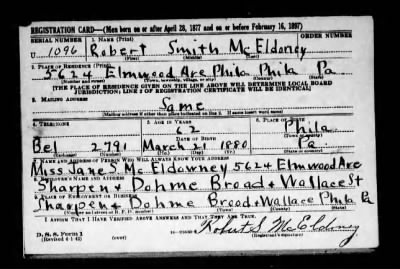 REGISTRATION CARD—(Men born on or after April 28, 1877 and on or before February 16, 1897)
SERIAL NUMBER 1. NAME (Print) ORDER NUMBER
U 1096 Robert Smith McEldoney
(First) (Middle) (Last)
2. PLACE OF RESIDENCE (Print)
5624 Elmwood Ave Phila Phila Pa
(Number and street) (Town, township, village, or city) (County) (State)
[THE PLACE OF RESIDENCE GIVEN ON THE LINE ABOVE WILL DETERMINE LOCAL BOARD
JURISDICTION; LINE 2 OF REGISTRATION CERTIFICATE WILL BE IDENTICAL]
3. MAILING ADDRESS
Same
[Mailing address if other than place indicated on line 2. If same insert word same]
4. TELEPHONE 5. AGE IN YEARS 6. PLACE OF BIRTH
62 Phila
DATE OF BIRTH (Town or county)
Bel 2791 March 21 1880 Pa.
7. NAME AND ADDRESS OF PERSON WHO WILL ALWAYS KNOW YOUR ADDRESS
Miss Jane S McEldowney 5624 Elmwood Ave
8. EMPLOYER'S NAME AND ADDRESS
Sharpen & Dohme Broad & Wallace St
9. PLACE OF EMPLOYMENT OR BUSINESS
Sharpen & Dohme Broad & Wallace Phila Pa
(Number and street or R. F. D. number) (Town) (County) (State)
I AFFIRM THAT I HAVE VERIFIED ABOVE ANSWERS AND THAT THEY ARE TRUE.
D. S. S. Form 1
(Revised 4-1-42) (over) Robert S McEldoney
(Registrant's signature)